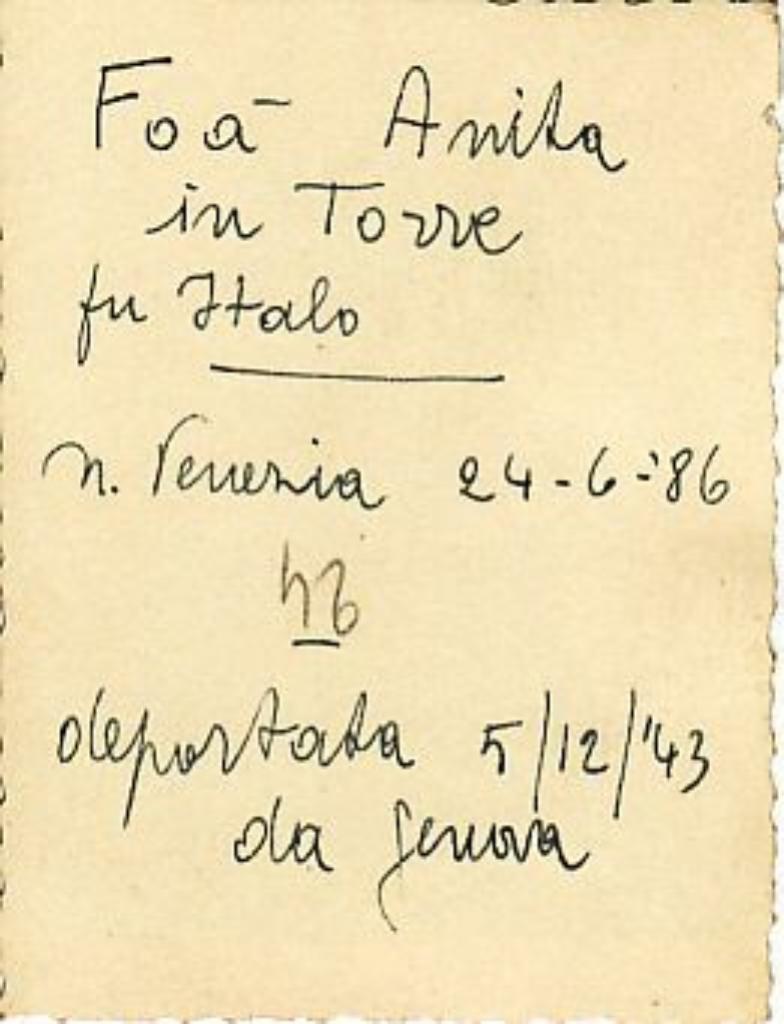 Foā Anita
in Torre
fu Italo
n. Venezia 24-6-'86
deportata 5/12/'43
da Genova